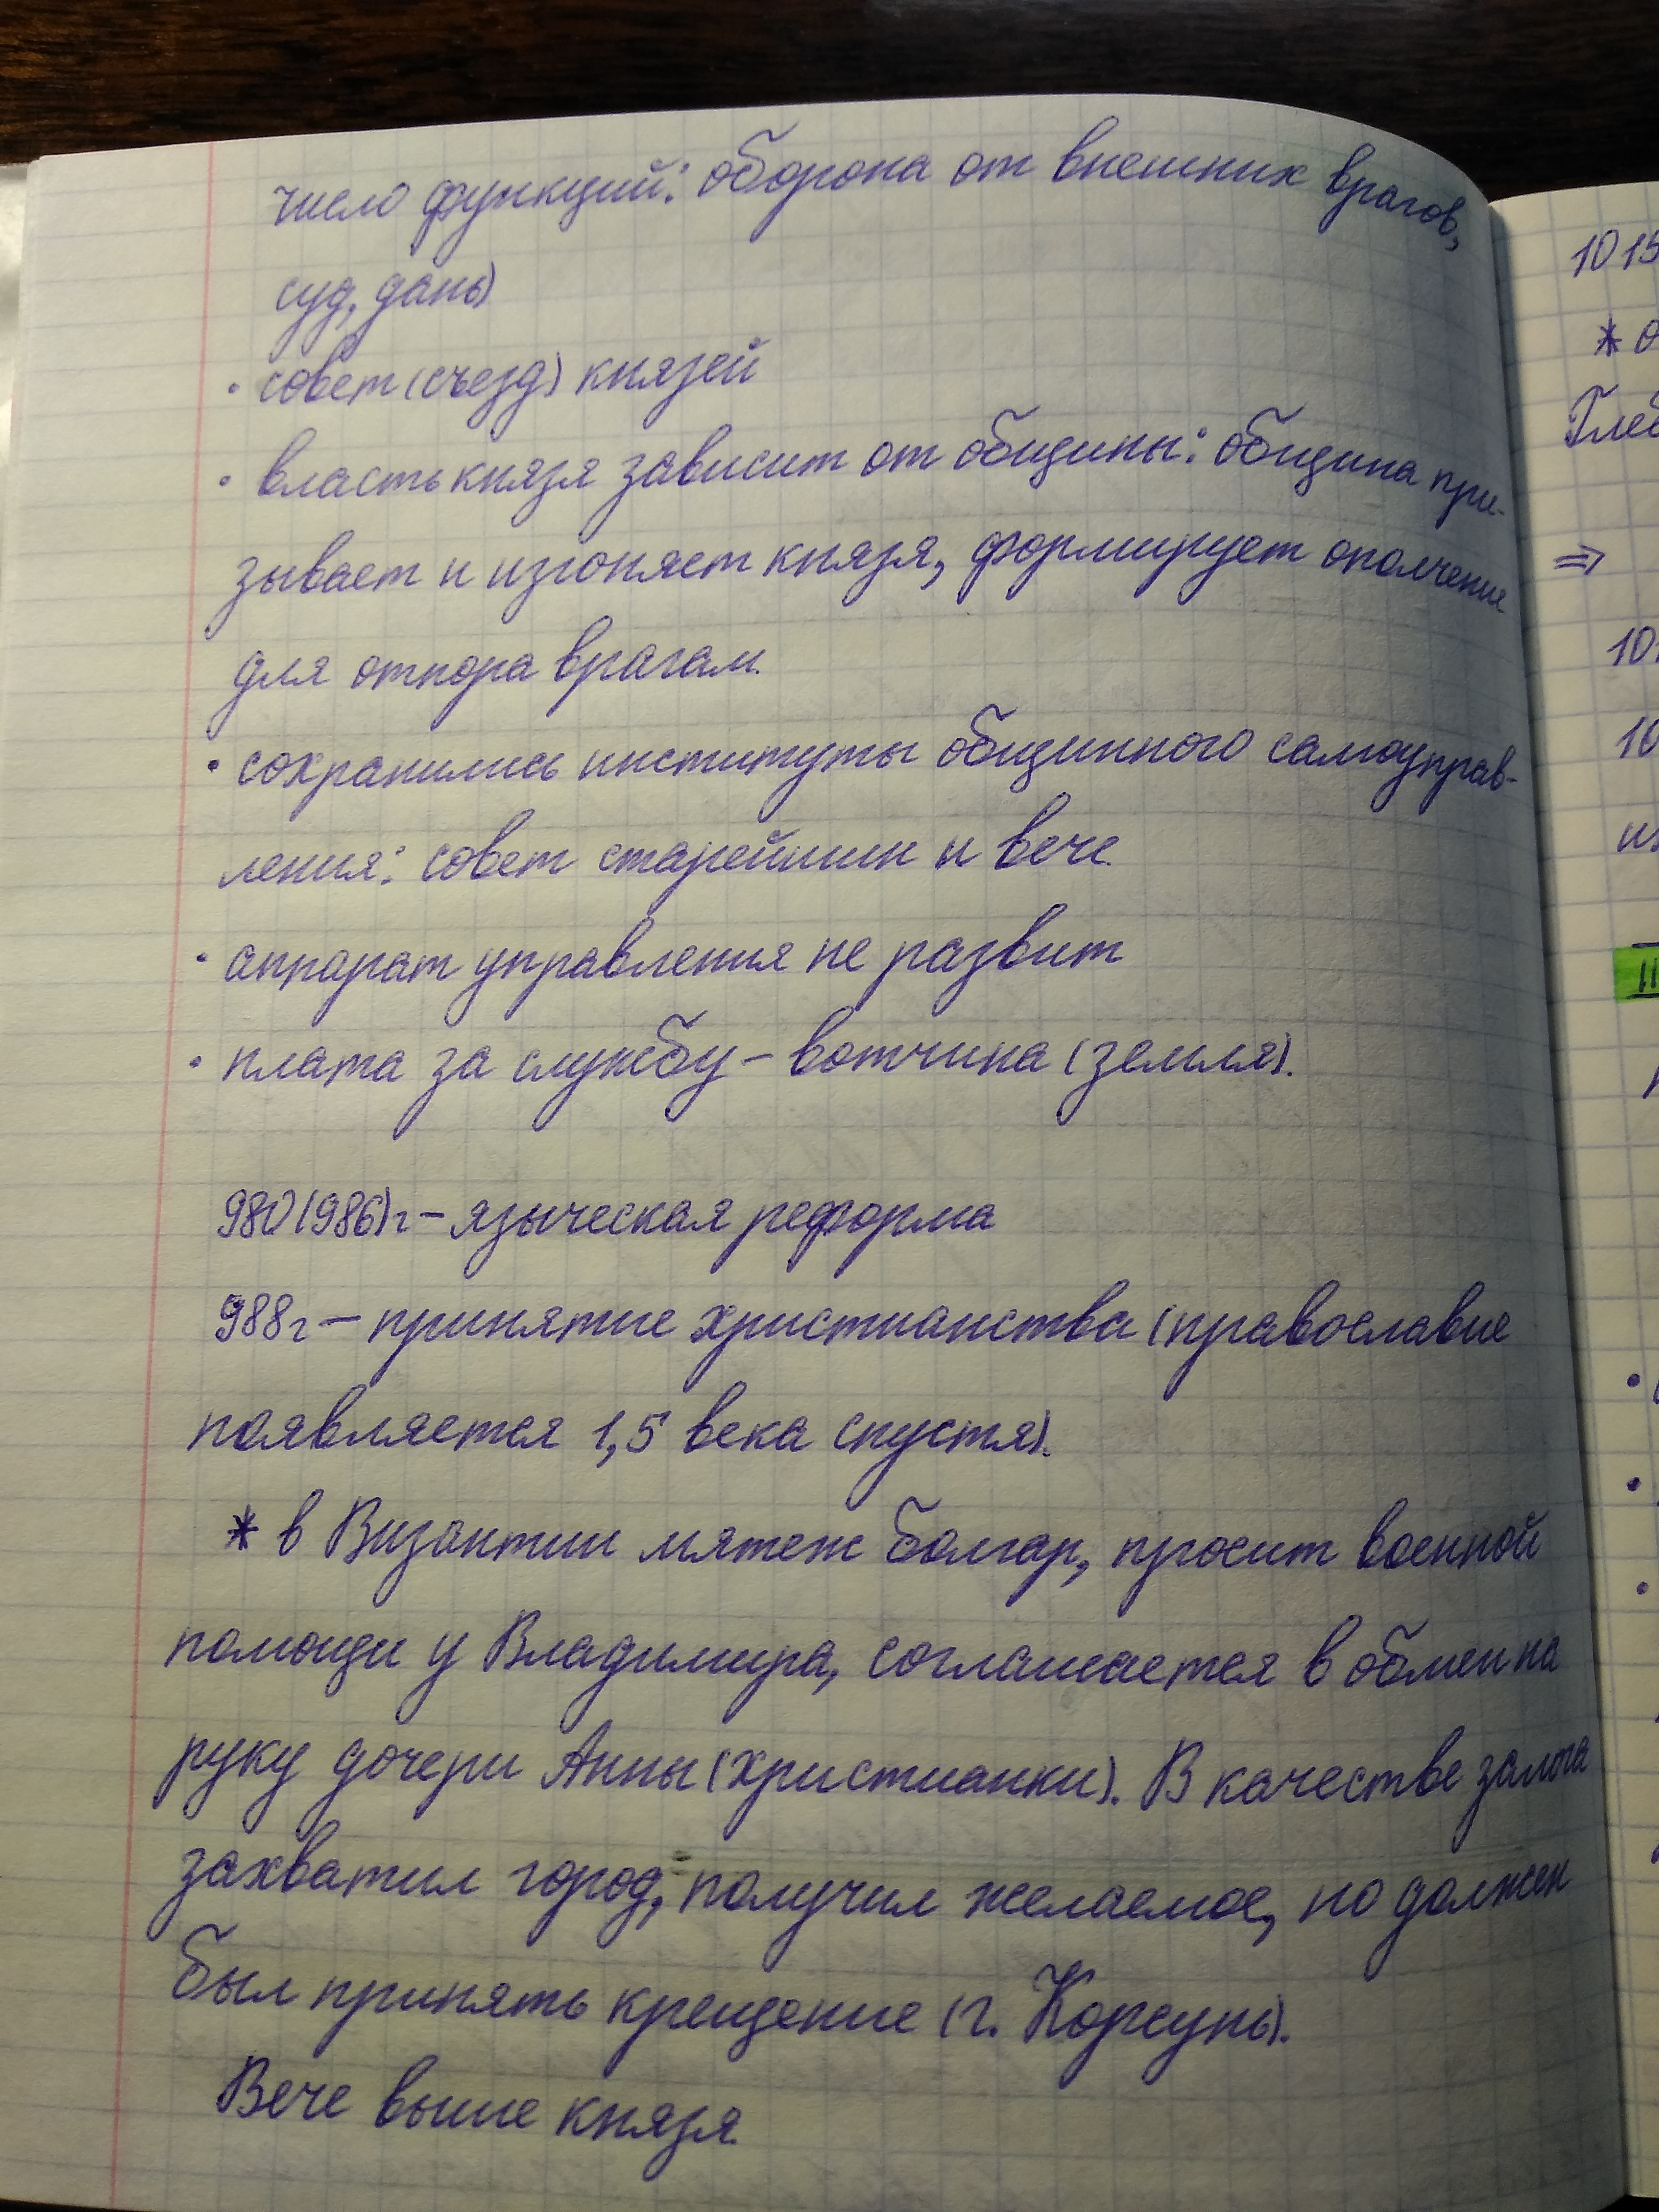 число функций: оборона от внешних врагов,
суд, дань)
· совет (съезд) князей
· власть князя зависит от общины: община при-
зывает и изгоняет князя, формирует ополчение
для отпора врагам.
· сохранились институты общинного самоуправ-
ления: совет старейшин и вече.
· аппарат управления не развит
· плата за службу – вотчина (земля).
980 (986) г – языческая реформа
988 г – принятие христианства (православие
появляется 1,5 века спустя).
* в Византии мятеж болгар, просит военной
помощи у Владимира, соглашается в обмен на
руку дочери Анны (христианки). В качестве залога
захватил город, получил желаемое, но должен
был принять крещение (г. Корсунь).
Вече выше князя.
1015
* о
Глеб
⇒
10
10
II